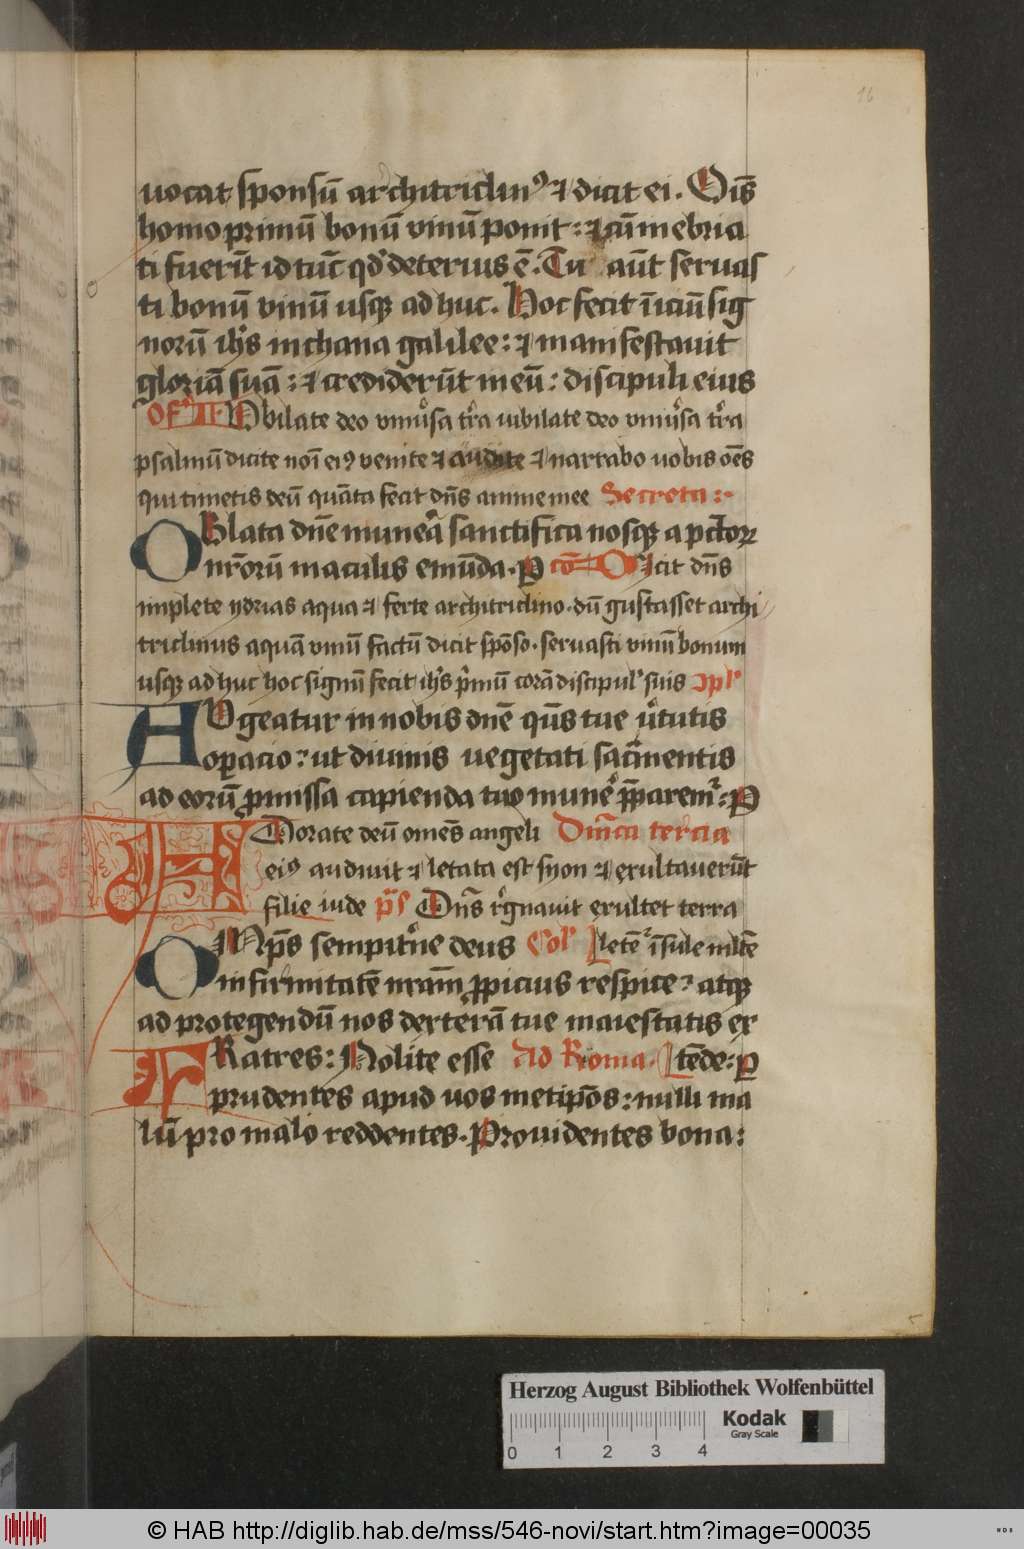 16
uocat sponsū architriclin⁹ ⁊ dicit ei. Oīs
homo primū bonū vinū ponit: ⁊ cū inebria
ti fuerīt id tūc qd̕ deterius ē. Tu aūt seruas
ti bonū vinū usqꝫ ad huc. Hoc fecit īiciū sig
norū ih̄s in chana galilee: ⁊ manifestauit
gloriā suā: ⁊ crediderūt in eū: discipuli eius
Of Iubilate deo vniu̕sa tr̄a iubilate deo vniu̕sa tr̄a
psalmū dicite noī ei⁹ venite ⁊ audite ⁊ narrabo uobis oēs
qui timetis deū quāta fecit dn̄s anime mee Secreta:
Oblata dn̄e munera sanctifica nosqꝫ a pctōꝝ
nr̄orū maculis emūda. ꝑ cō Dicit dn̄s
implete ydrias aqua ⁊ ferte architriclino. dū gustasset archi
triclinus aquā vinū factū dicit spōso. seruasti vinū bonum
usqꝫ ad huc hoc signū fecit ih̄s p̄mū corā discipul̕ suis ɔpl̕
Augeatur in nobis dn̄e qūs tue v̕tutis
oꝑacio: ut diuinis uegetati sacr̄mentis
ad eorū ꝓmissa capienda tuo mune̕ p̄parem̕: P
Adorate deū omēs angeli Dn̄ica tercia
ei⁹ audiuit ⁊ letata est syon ⁊ exultauerūt
filie iude p̄s Dn̄s r̕gnauit exultet terra
Omp̄s sempit̕ne deus Col̕ letēt̕ īsule mlt̄e
infirmitatē nrām ꝓpicius respice: atqꝫ
ad protegendū nos dexterā tue maiestatis ex
Fratres: Nolite esse Ad Roma. tēde: ꝑ
prudentes apud uos metip̄os: nulli ma
lū pro malo reddentes. Prouidentes bona:
Herzog August Bibliothek Wolfenbüttel
0 1 2 3 4
Kodak
Gray Scale
© HAB http://diglib.hab.de/mss/546-novi/start.htm?image=00035